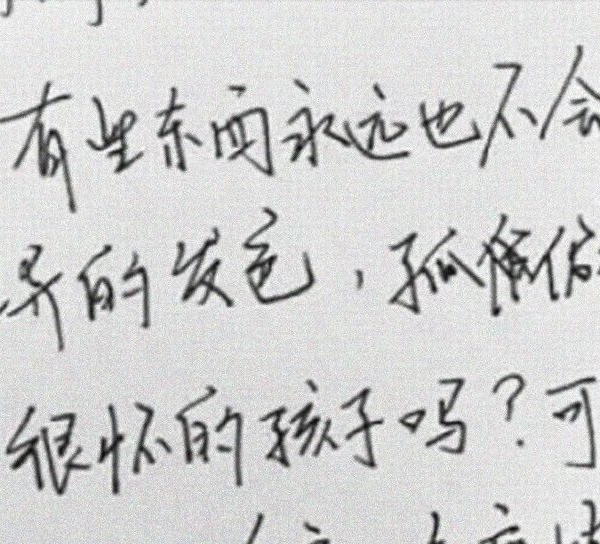 有些东西永远也不会
异的发色，孤僻
很怀的孩子吗？可